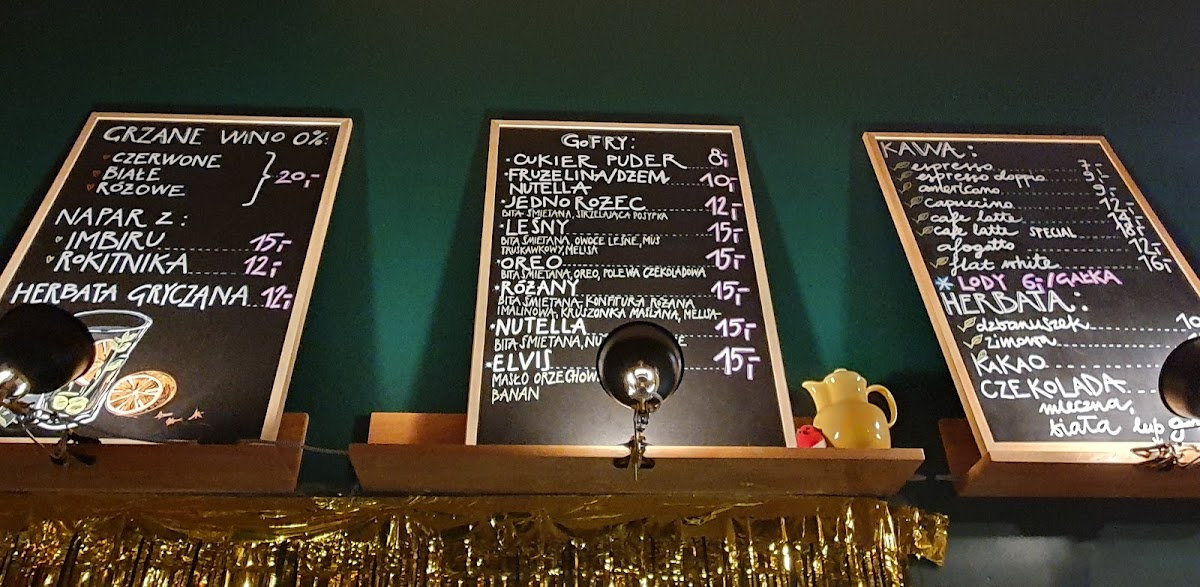 GRZANE WINO 0%:
CZERWONE
BIAŁE
RÓŻOWE
20,-
NAPAR Z:
IMBIRU 15,-
ROKITNIKA 12,-
HERBATA GRYCZANA 12,-
GOFRY:
CUKIER PUDER 8,-
FRUZELINA/DŻEM
NUTELLA 10,-
JEDNOROŻEC 12,-
BITA ŚMIETANA, STRZELAJĄCA POSYPKA
LEŚNY 15,-
BITA ŚMIETANA, OWOCE LEŚNE, MUS
TRUSKAWKOWY, MELISA
OREO 15,-
BITA ŚMIETANA, OREO, POLEWA CZEKOLADOWA
RÓŻANY 15,-
BITA ŚMIETANA, KONFITURA RÓŻANA
I MALINOWA, KRUSZONKA MAŚLANA, MELISA
NUTELLA 15,-
BITA ŚMIETANA,
ELVIS 15,-
MASŁO ORZECHOW
BANAN
KAWA:
espresso 7,-
espresso doppio 9,-
americano 9,-
capuccino 12,-
cafe latte 14,-
cafe latte SPECIAL 18,-
afogatto 12,-
flat white 16,-
LODY 6,-/GAŁKA
HERBATA:
dzbanuszek
zimowa
KAKAO
CZEKOLADA
mleczna,
biała lub